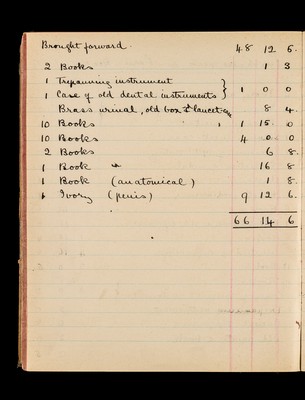 Brought forward. 48 12 6.
2 Books 1 3
1 Trepanning instrument
1 Case of old dental instruments } 1 0 0
Brass urinal, old box & lancet 8 4.
10 Books 1 15. 0
10 Books 4 0 0
2 Books 6 8.
1 Book " 16 8
1 Book (anatomical) 1 8.
1 Ivory (penis) 9 12 6.
66 14 6